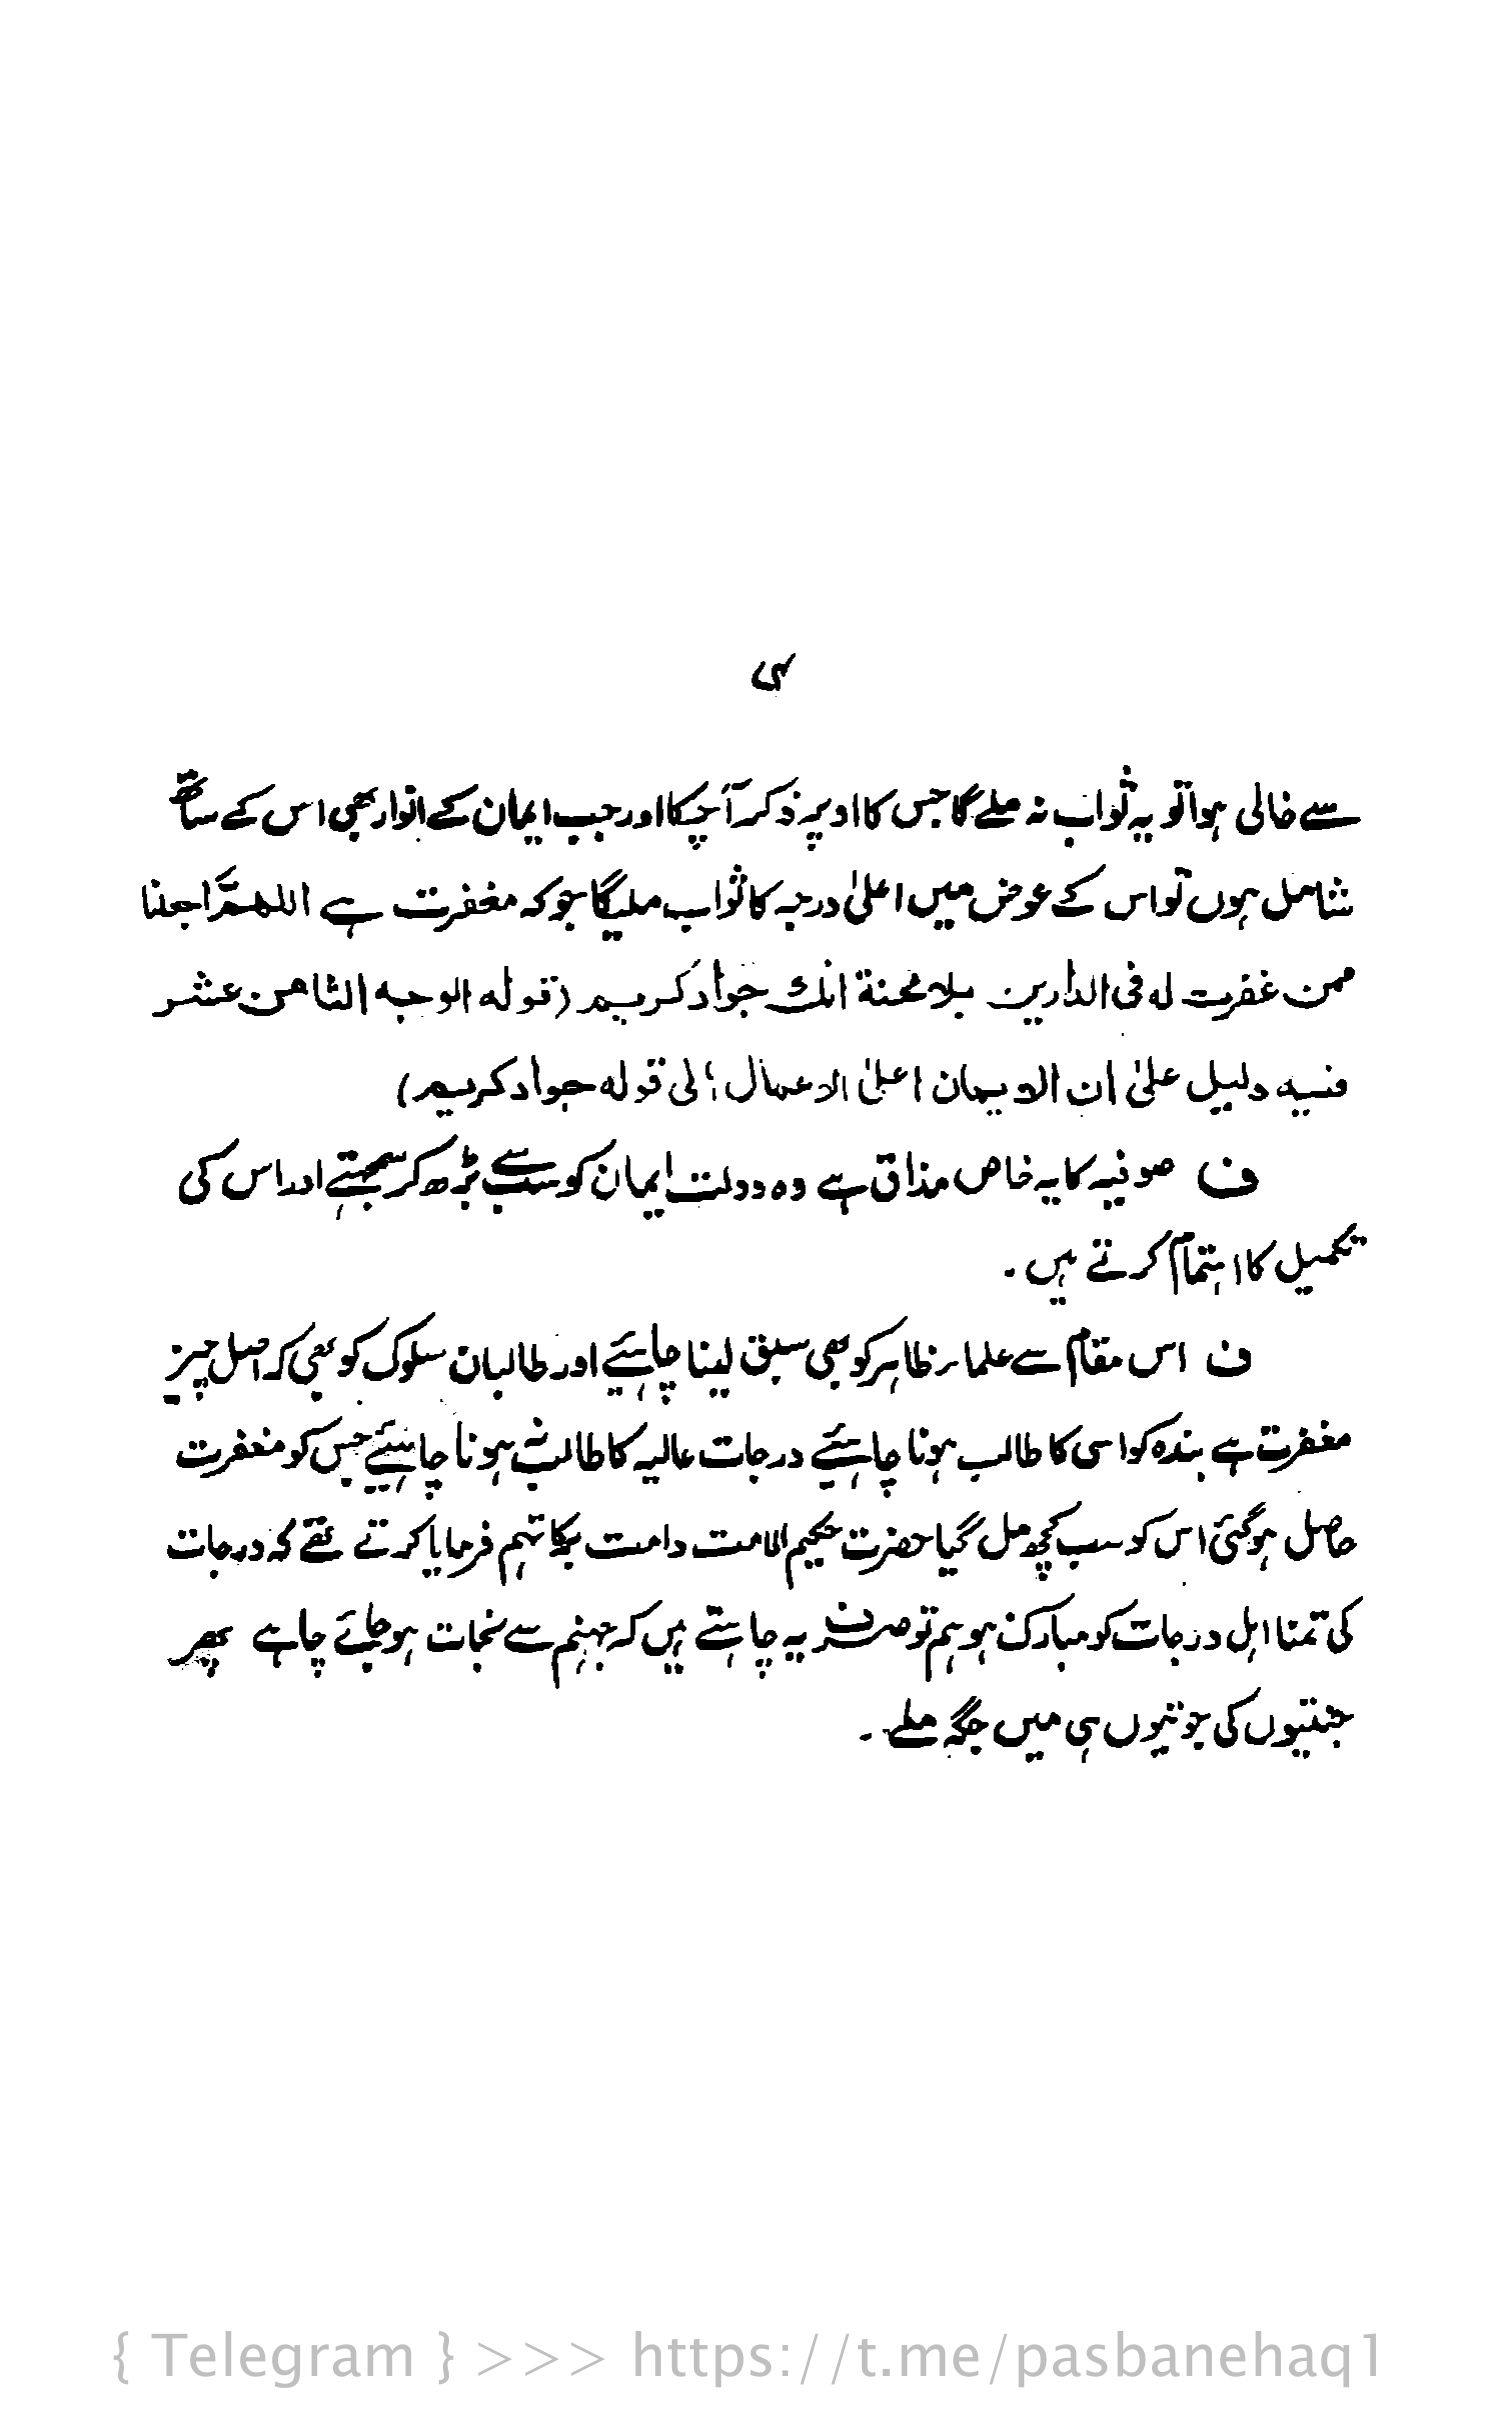 ی
سے خالی ہوا تو یہ ثواب نہ ملے گا جس کا اوپر ذکر آ چکا اور جب ایمان کے انوار بھی اس کے ساتھ
شامل ہوں تو اس کے عوض میں اعلیٰ درجہ کا ثواب ملیگا جو کہ مغفرت ہے اللھمّ اجعلنا
ممن غفرت له فی الدارین بلا محنة انك جواد کریم (قوله الوجه الثامن عشر
فیه دلیل علیٰ ان الایمان اعلیٰ الاعمال الی قوله جواد کریم)
ف صوفیہ کا یہ خاص مذاق ہے وہ دولت ایمان کو سب سے بڑھ کر سمجھتے اور اس کی
تکمیل کا اہتمام کرتے ہیں ۔
ف اس مقام سے علماء ظاہر کو بھی سبق لینا چاہئیے اور طالبان سلوک کو بھی کہ اصل چیز
مغفرت ہے بندہ کو اسی کا طالب ہونا چاہئیے درجات عالیہ کا طالب نہ ہونا چاہئیے جس کو مغفرت
حاصل ہوگئی اس کو سب کچھ مل گیا حضرت حکیم الامت دامت برکاتہم فرمایا کرتے تھے کہ درجات
کی تمنا اہل درجات کو مبارک ہو ہم تو صرف یہ چاہتے ہیں کہ جہنم سے نجات ہو جائے چاہے پھر
جنتیوں کی جوتیوں ہی میں جگہ ملے ۔
{ Telegram } >>> https://t.me/pasbanehaq1